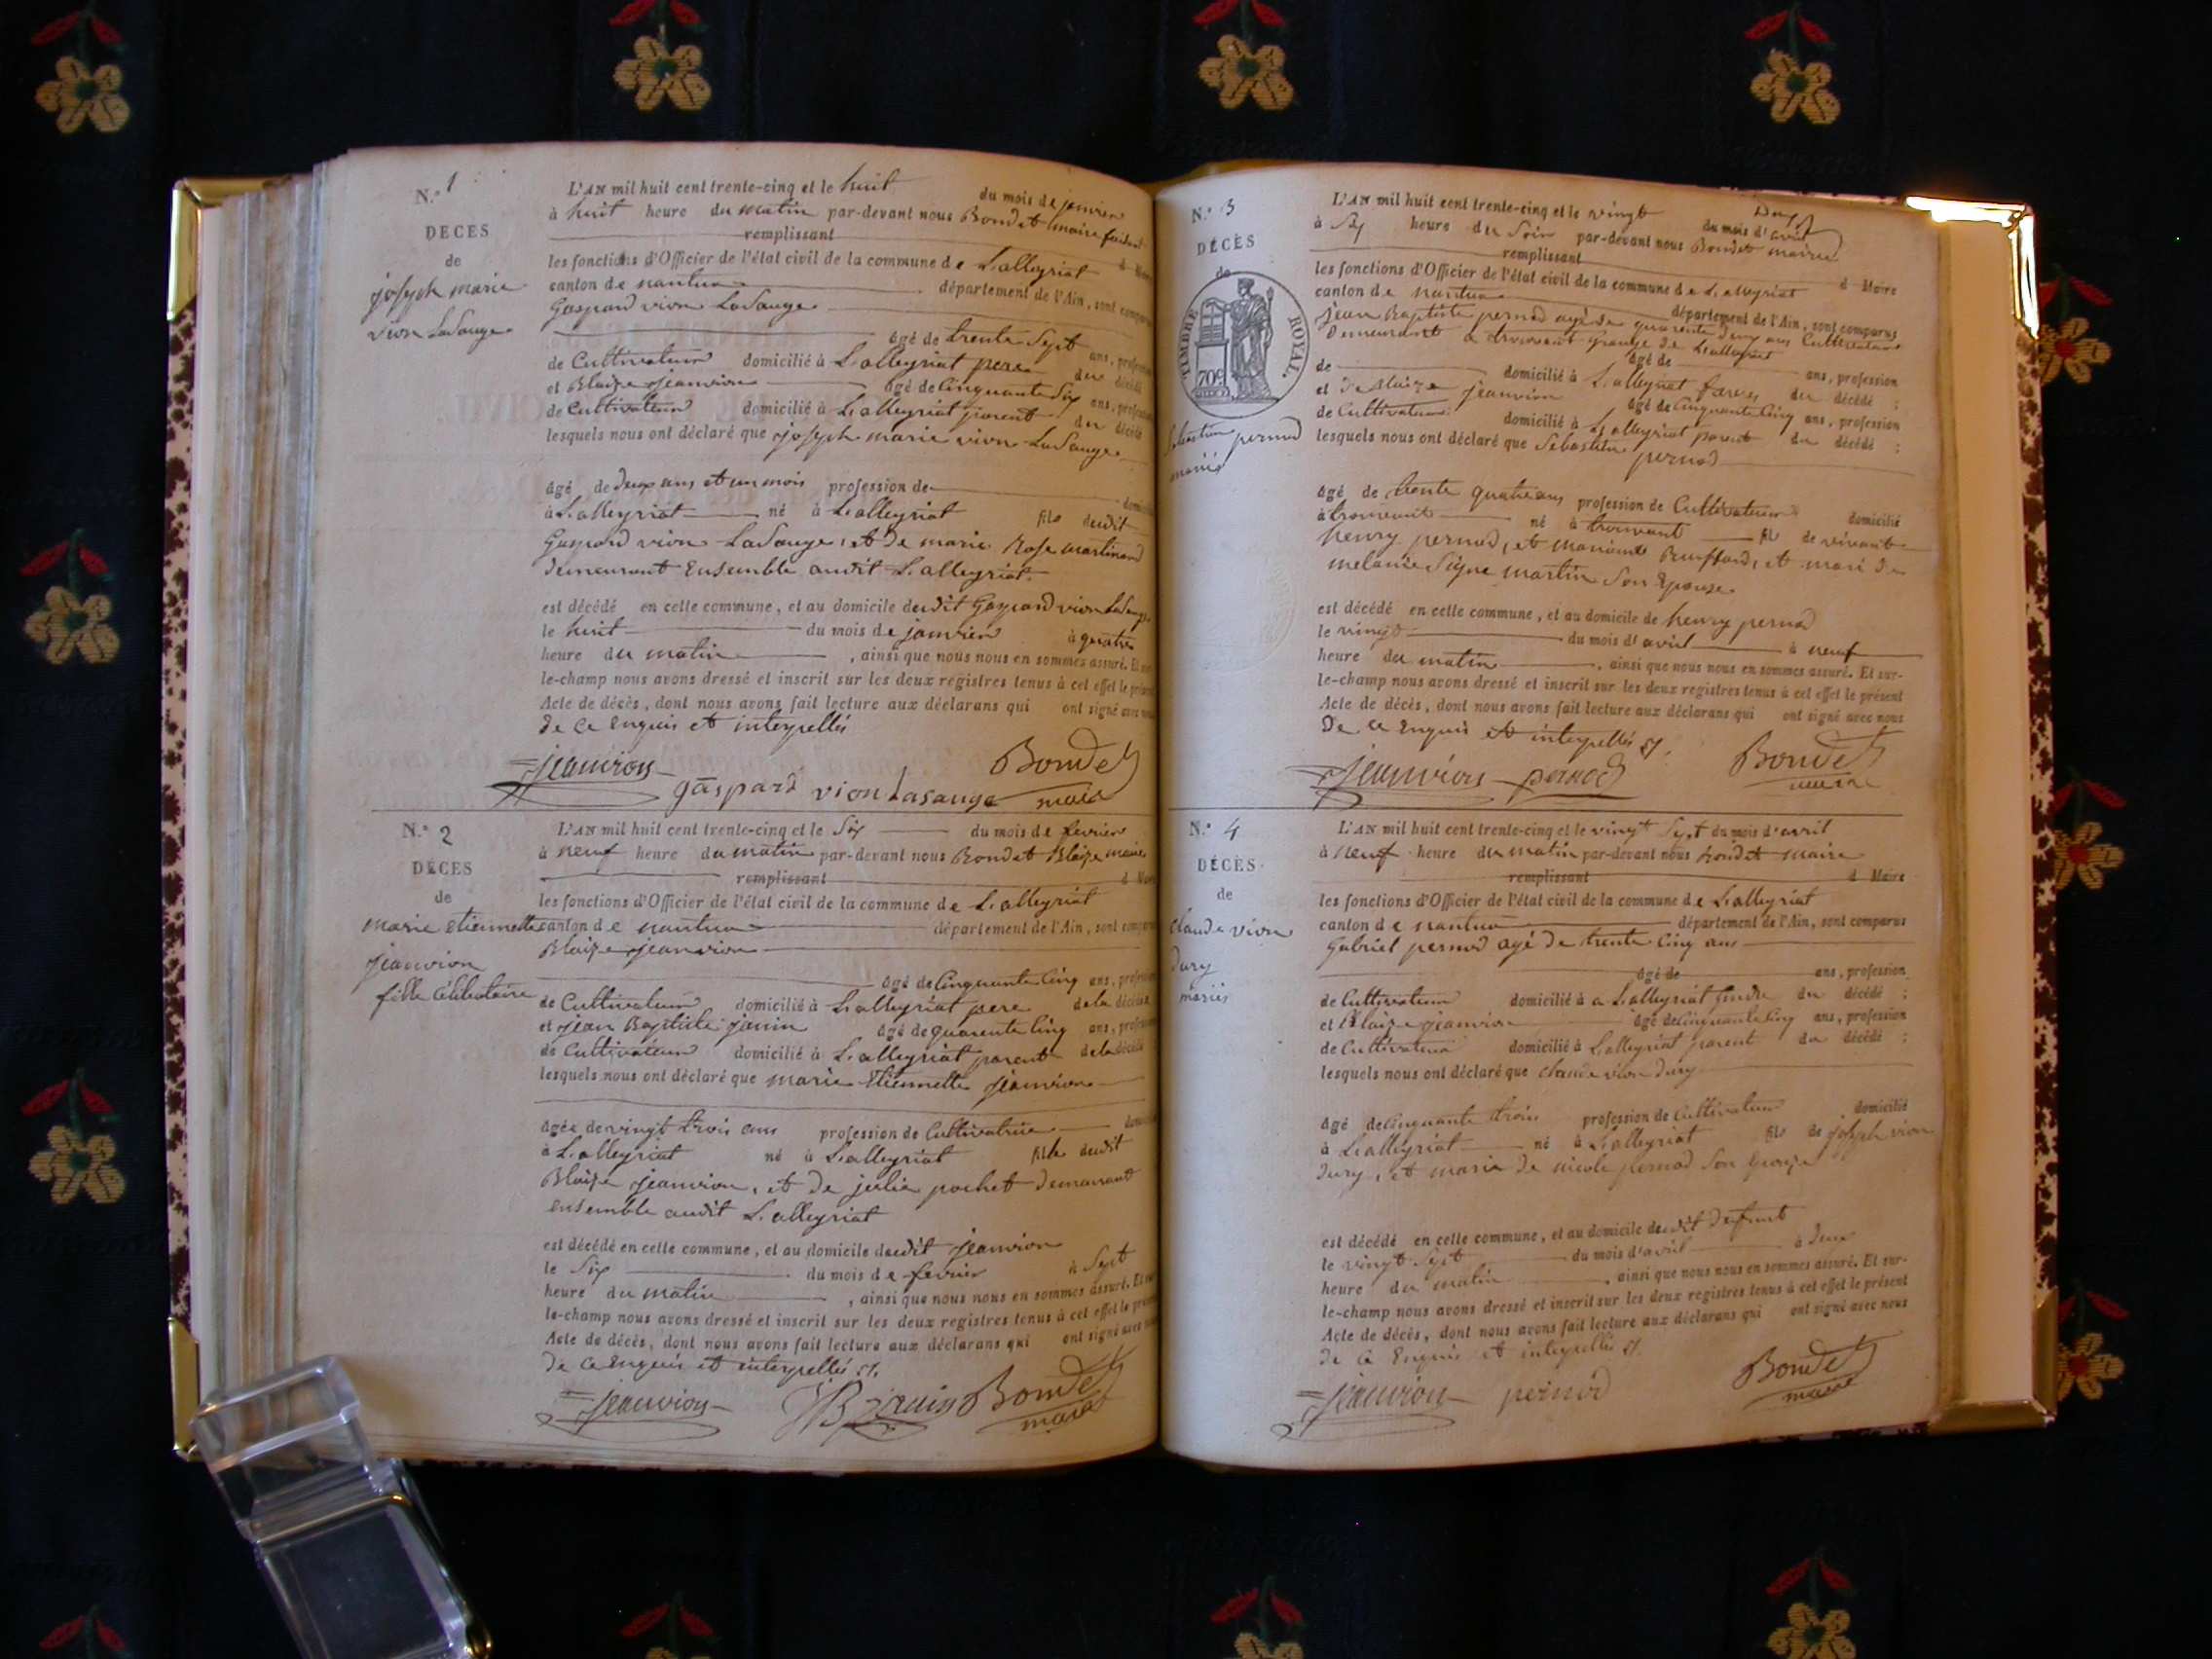 N.º 1
DÉCES
de
joseph marie
vion LaSauge
L'AN mil huit cent trente-cinq et le huit du mois de janvier
à huit heure du matin par-devant nous Bondet maire faisant
remplissant d Maire
les fonctions d'Officier de l'état civil de la commune de Lalleyriat
canton de nantua département de l'Ain, sont comparus
Gaspard vion LaSauge
âgé de trente Sept ans, profession
de Cultivateur domicilié à Lalleyriat pere du décédé
et Blaize jeanvion âgé de Cinquante Six ans, profession
de Cultivateur domicilié à Lalleyriat parent du décédé
lesquels nous ont déclaré que joseph marie vion LaSauge
âgé de deux ans et un mois profession de domicilié
à Lalleyriat né à Lalleyriat fils dudit
Gaspard vion LaSauge, et de marie Rose martinand
demeurant Ensemble audit Lalleyriat
est décédé en cette commune, et au domicile dudit Gaspard vion LaSauge
le huit du mois de janvier à quatre
heure du matin, ainsi que nous nous en sommes assuré. Et sur-
le-champ nous avons dressé et inscrit sur les deux registres tenus à cet effet le présent
Acte de décès, dont nous avons fait lecture aux déclarans qui ont signé avec nous
de ce Enquis et interpellés
jeanvion gaspard vion lasauge Bondet maire
N.º 2
DÉCES
de
marie Etiennette
jeanvion
fille Célibataire
L'AN mil huit cent trente-cinq et le Six du mois de fevrier
à neuf heure du matin par-devant nous Bondet Blaize maire
remplissant d Maire
les fonctions d'Officier de l'état civil de la commune de Lalleyriat
canton de nantua département de l'Ain, sont comparus
Blaize jeanvion
âgé de Cinquante Cinq ans, profession
de Cultivateur domicilié à Lalleyriat pere de la décédée
et jean Baptiste janin âgé de quarante Cinq ans, profession
de Cultivateur domicilié à Lalleyriat parent de la décédé
lesquels nous ont déclaré que marie Etiennette jeanvion
âgée de vingt trois ans profession de Cultivatrice
à Lalleyriat né à Lalleyriat fille dudit
Blaize jeanvion, et de julie pochet demeurant
ensemble audit Lalleyriat
est décédé en cette commune, et au domicile dudit jeanvion
le Six du mois de fevrier à Sept
heure du matin, ainsi que nous nous en sommes assuré. Et sur-
le-champ nous avons dressé et inscrit sur les deux registres tenus à cet effet le présent
Acte de décès, dont nous avons fait lecture aux déclarans qui ont signé avec nous
de ce Enquis et interpellés
jeanvion JB janin Bondet maire
N.º 3
DÉCÈS
de
TIMBRE ROYAL.
70c
Sebastien pernod
mariés
L'AN mil huit cent trente-cinq et le vingt du mois d'avril
à Six heure du Soir par-devant nous Bondet maire
remplissant d Maire
les fonctions d'Officier de l'état civil de la commune de Lalleyriat
canton de nantua département de l'Ain, sont comparus
jean Baptiste pernod agé de quarante deux ans Cultivateur
Demeurant a trouvant grange de Lalleyriat
âgé de ans, profession
de domicilié à Lalleyriat frere du décédé ;
et de Blaize jeanvion âgé de Cinquante Cinq ans, profession
de Cultivateur domicilié à Lalleyriat parent du décédé ;
lesquels nous ont déclaré que Sebastien pernod
âgé de trente quatre ans profession de Cultivateur domicilié
à trouvant né à trouvant fils de vivant
henry pernod, et mariane Buffard, et mari de
melanie Signe martin Son Epouse
est décédé en cette commune, et au domicile de henry pernod
le vingt du mois d'avril à neuf
heure du matin, ainsi que nous nous en sommes assuré. Et sur-
le-champ nous avons dressé et inscrit sur les deux registres tenus à cet effet le présent
Acte de décès, dont nous avons fait lecture aux déclarans qui ont signé avec nous
De ce Enquis et interpellés
jeanvion pernod Bondet maire
N.º 4
DÉCÈS
de
claude vion
Dury
mariés
L'AN mil huit cent trente-cinq et le vingt Sept du mois d'avril
à neuf heure du matin par-devant nous Bondet maire
remplissant d Maire
les fonctions d'Officier de l'état civil de la commune de Lalleyriat
canton de nantua département de l'Ain, sont comparus
Gabriel pernod agé de trente Cinq ans
âgé de ans, profession
de Cultivateur domicilié à a Lalleyriat gendre du décédé ;
et Blaize jeanvion âgé de Cinquante Cinq ans, profession
de Cultivateur domicilié à Lalleyriat parent du décédé ;
lesquels nous ont déclaré que claude vion Dury
âgé de Cinquante trois profession de Cultivateur domicilié
à Lalleyriat né à Lalleyriat fils de joseph vion
Dury, et marie de nicole pernod Son Epouse
est décédé en cette commune, et au domicile dudit defunt
le vingt Sept du mois d'avril à deux
heure du matin, ainsi que nous nous en sommes assuré. Et sur-
le-champ nous avons dressé et inscrit sur les deux registres tenus à cet effet le présent
Acte de décès, dont nous avons fait lecture aux déclarans qui ont signé avec nous
de ce Enquis et interpellés
jeanvion pernod Bondet maire